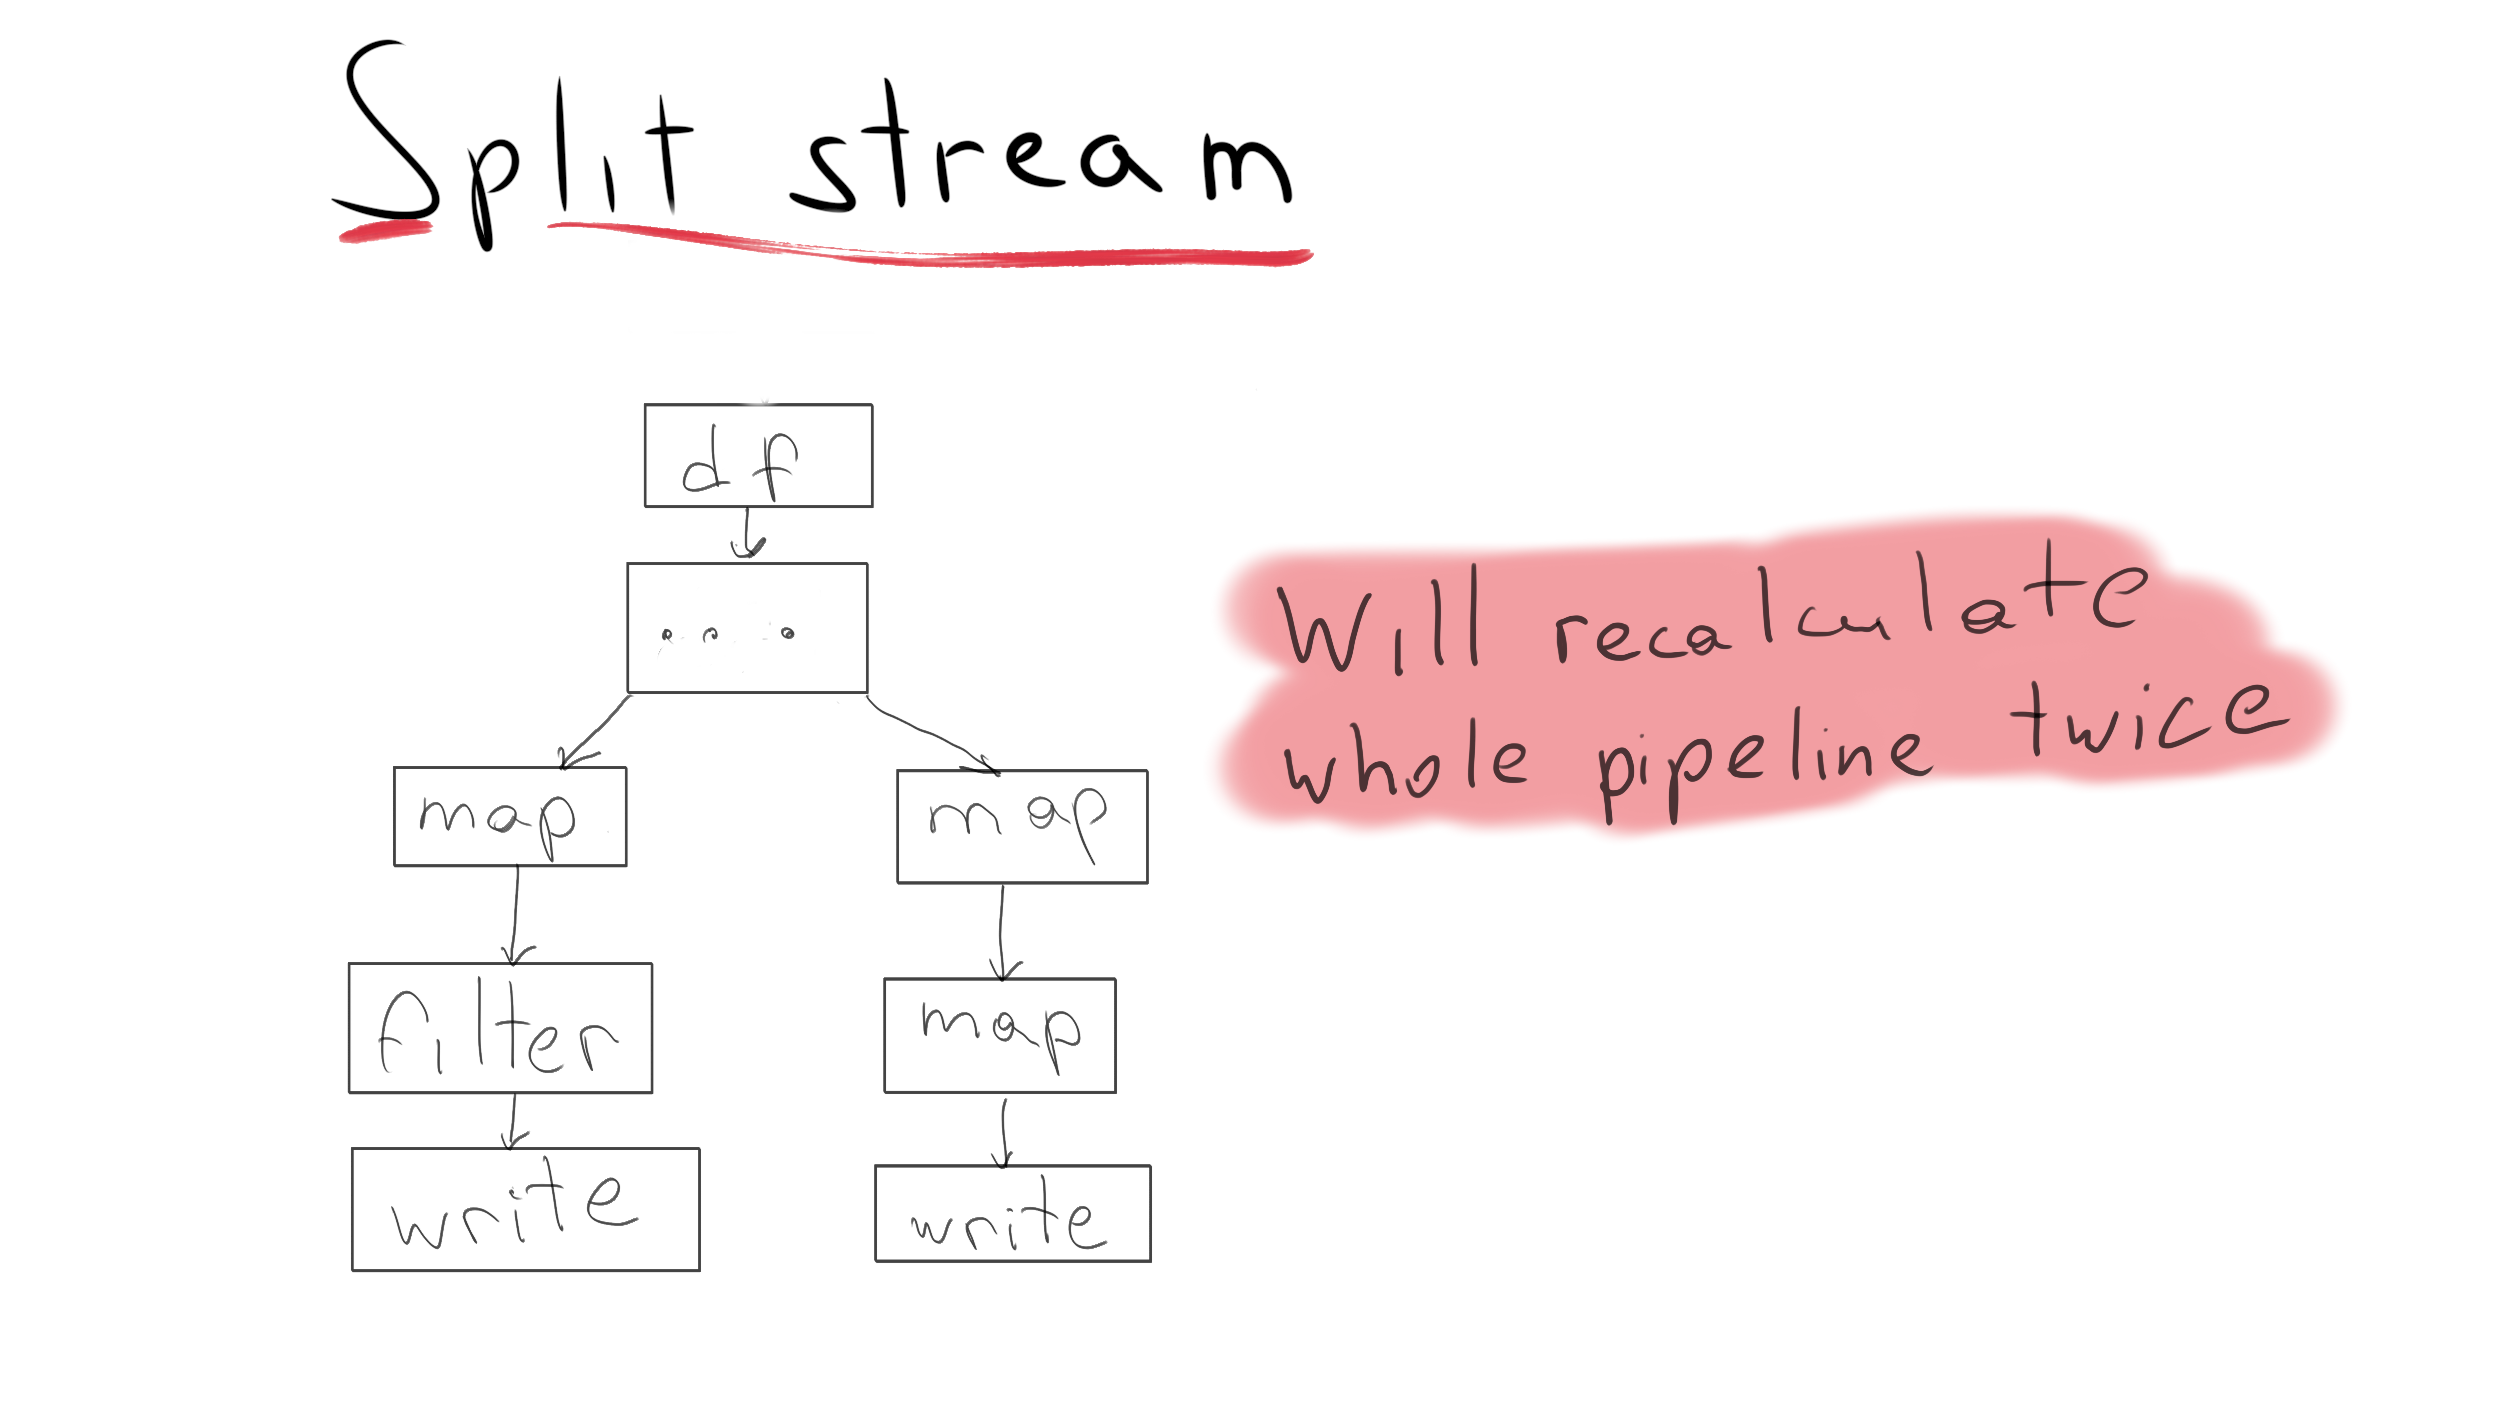 Split stream
df
...
map
map
filter
map
write
write
Will recalculate
whole pipeline twice